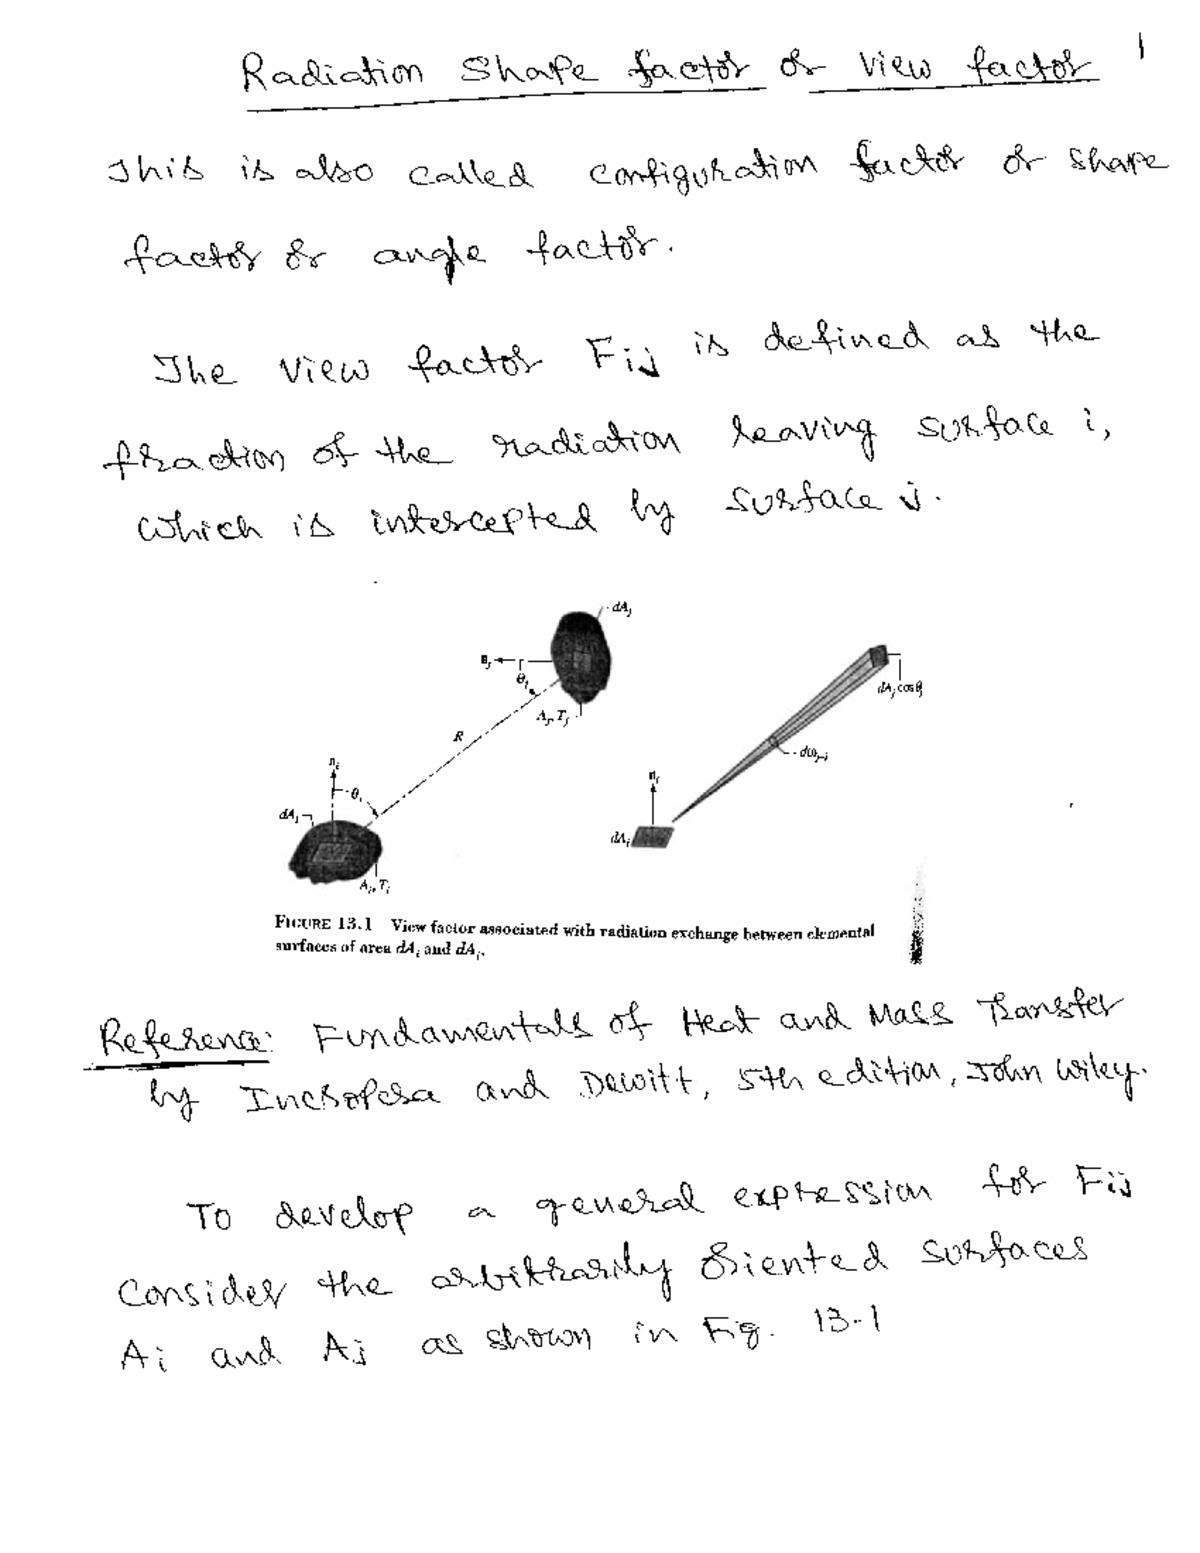 Radiation Shape factor or View factor
1
This is also called configuration factor or shape
factor or angle factor.
The view factor Fij is defined as the
fraction of the radiation leaving surface i,
which is intercepted by surface j.
dAj
nj
θj
Aj, Tj
R
ni
θi
dAi
Ai, Ti
dAj cos θj
dωj-i
ni
dAi
FIGURE 13.1 View factor associated with radiation exchange between elemental
surfaces of area dAi and dAj.
Reference: Fundamentals of Heat and Mass Transfer
by Incropera and Dewitt, 5th edition, John Wiley.
To develop a general expression for Fij
Consider the arbitrarily oriented surfaces
Ai and Aj as shown in Fig. 13.1